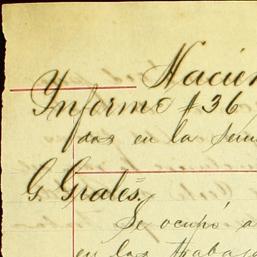 Nacion
Informe # 36
das en la Sem
G. Grales.
Se ocupó a
en los trabajo